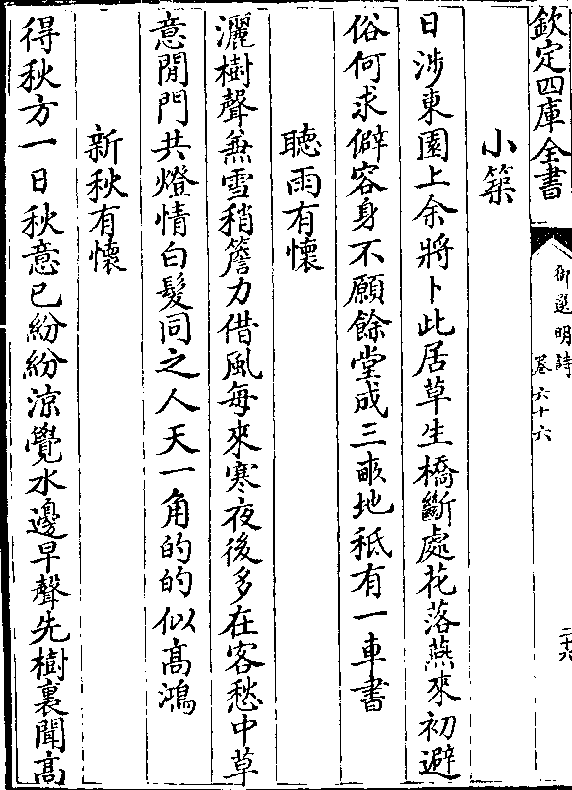 欽定四庫全書
御選明詩
卷六十六
二十六
小築
日涉東園上余將卜此居草生橋斷處花落燕來初避
俗何求僻容身不願餘堂成三畝地秪有一車書
聽雨有懷
灑樹聲無雪稍簷力借風每來寒夜後多在客愁中草
意閒門共燈情白髮同之人天一角的的似高鴻
新秋有懷
得秋方一日秋意已紛紛涼覺水邊早聲先樹裏聞高